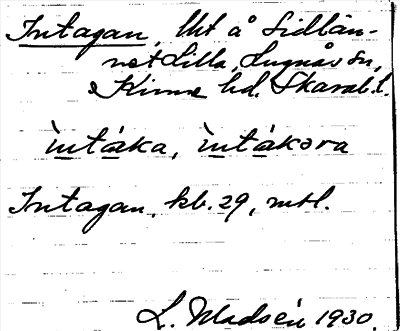 Intagan, Ut å Sidlän-
net Lilla, Lugnås sn,
Kinne hd. Skarab.l.
ìntáka, ìntákəra
Intagan, kb. 29, mtl.
L. Madsén 1930.